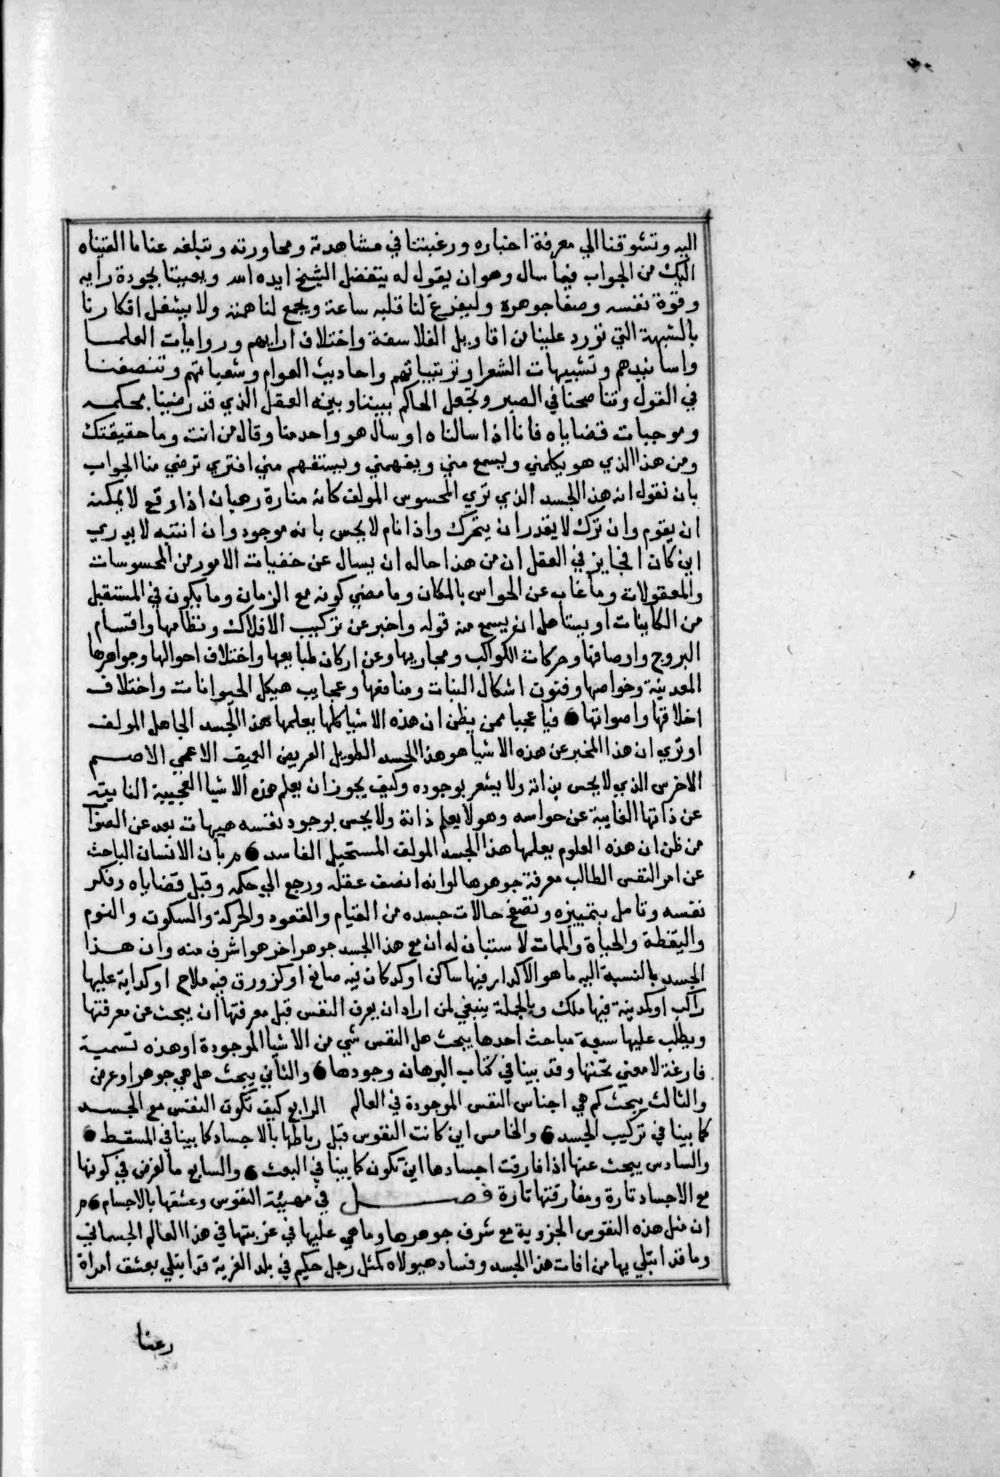 اليه وتشوقنا الي معرفة اخباره ورغبتنا في مشاهدته ومحاورته وتبلغه عنا ما القيناه
اليك من الجواب فيما سال وهو ان يقول له يتفضل الشيخ ايده الله ويعيننا بجودة رايه
وقوة نفسه وصفا جوهره وليفرغ لنا قلبه ساعة ويجمع لنا همته ولا يشغل افكارنا
بالشبهة التي تورد علينا من اقاويل الفلاسفة واختلاف ارايهم وروايات العلما
واسانيدهم وتشبيهات الشعرا وتزيتباتهم واحاديث العوام وتنصفنا
في القول وتناصحنا في الصبر ونجعل الحاكم بيننا وبينه العقل الذي قد رضينا بحكمه
وموجبات قضاياه فانا اذا سالناه او سال هو واحد منا وقال من انت وما حقيقتك
ومن هذا الذي هو يكلمني ويسمع مني ويفهمني ويستفهم مني افتري ترضي منا الجواب
بان نقول انه هذا الجسد الذي تري المحسوس المولف كانه منارة رهبان اذا وقع لا يمكنه
ان يقوم وان ترك لا يقدر ان يتحرك واذا نام لا يحس بانه موجود وان انتبه لا يدري
اين كان افجايز في العقل ان من هذا حاله ان يسال عن خفيات الامور من المحسوسات
والمعقولات وما غاب عن الحواس بالمكان وما مضي كونه مع الزمان وما يكون في المستقبل
من الكاينات او يستاهل ان يسمع منه قوله واخبر عن تركيب الافلاك ونظامها واقسام
البروج واوصافها وحركات الكواكب ومجاريها وعن اركان طبايعها واختلاف احوالها وجواهرها
المعدنية وخواصها وفنون اشكال النبات ومنافعها وعجايب هيكل الحيوانات واختلاف
اخلاقها واصواتها فيا عجبا ممن يظن ان هذه الاشيا كلها يعلمها هذا الجسد الجاهل المولف
او تري ان هذا المخبر عن هذه الاشيا هو هذا الجسد الطويل العريض العميق الاعمي الاصم
الاخرس الذي لا يحس بذاته ولا يشعر بوجوده وكيف يجوز ان يعلم هذه الاشيا العجيبة النايية
عن ذاتها الغايبة عن حواسه وهو لا يعلم ذاته ولا يحس بوجود نفسه هيهات بعد عن الصوا
من ظن ان هذه العلوم يعلمها هذا الجسد المولف المستحيل الفاسد بان الانسان الباحث
عن امر النفس الطالب معرفة جوهرها لو انه انصف عقله ورجع الي حكمه وقبل قضاياه وفكر
نفسه وتامل بتمييزه وتصفح حالات جسده من القيام والقعود والحركة والسكون والنوم
واليقظة والحياة والممات لاستبان له ان مع هذا الجسد جوهر اخر هو اشرف منه وان هذا
الجسد بالنسبة اليه ما هو الا كدار فيها ساكن او كدكان فيه صانع او كزورق فيه ملاح او كدابة عليها
راكب او كمدينة فيها ملك وبالجملة ينبغي لمن اراد ان يعرف النفس قبل معرفتها ان يبحث عن معرفتها
ويطلب عليها سبعة مباحث احدها يبحث هل النفس شي من الاشيا الموجودة او هذه تسمية
فارغة لا معني تحتها وقد بينا في كتاب البرهان وجودها والثاني يبحث هل هي جوهر او عرض
والثالث يبحث كم هي اجناس النفس الموجودة في العالم الرابع كيف تكون النفس مع الجسد
كما بينا في تركيب الجسد والخامس اين كانت النفوس قبل رباطها بالاجساد كما بينا في المسقط
والسادس يبحث عنها اذا فارقت اجسادها اين تكون كما بينا في البعث والسابع ما الغرض في كونها
مع الاجساد تارة ومفارقتها تارة فصل في النفوس وعشقها بالاجسام
ان مثل هذه النفوس الجزوية مع شرف جوهرها وما هي عليها في غربتها في هذا العالم الجسماني
وما قد ابتلي بها من افات هذا الجسد وفساد هيولاه كمثل رجل حكيم في بلد الغربة قد ابتلي بعشق امراة
رعنا